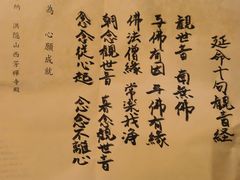 延命十句観音経
觀世音 南無佛
与佛有因 与佛有縁
佛法僧縁 常楽我浄
朝念觀世音 暮念觀世音
念念從心起 念念不離心
為 心願成就
納 洪隠山西芳禅寺殿